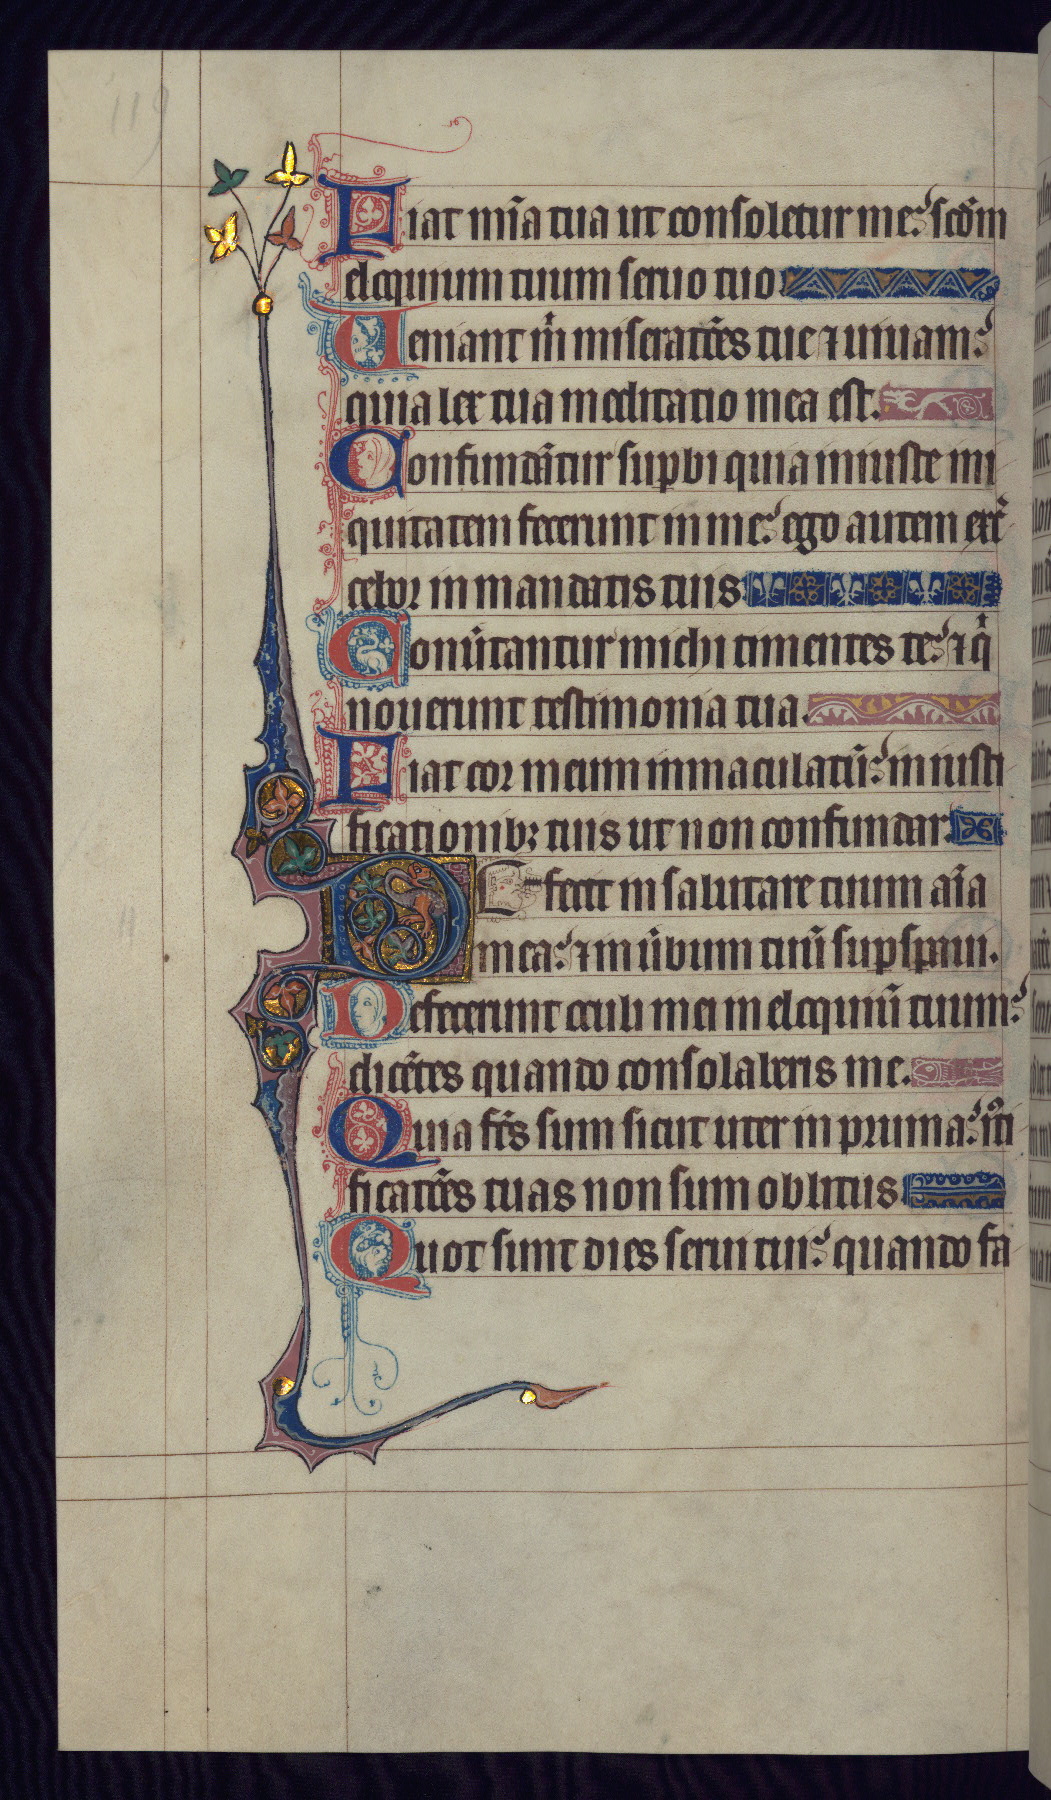 119
Fiat mīa tua ut consoletur me: scdm̄
eloquium tuum seruo tuo
Ueniant m̄ miseratōes tue ⁊ uiuam:
quia lex tua meditatio mea est.
Confundāt̄ur supbi quia iniuste ini
quitatem fecerunt in me: ego autem exer̄
cebor in mandatis tuis
Conūtantur michi timentes te: ⁊ q̄
nouerunt testimonia tua.
Fiat cor meum immaculatū: in iusti
ficationibꝫ tuis ut non confundar.
Defecit in salutare tuum aīa
mea: ⁊ in ūbum tuū supspaui.
Defecerunt oculi mei in eloquiū tuum:
dicētes quando consolaberis me.
Quia fc̄s sum sicut uter in pruina: iūsti
ficatōes tuas non sum oblitus
Quot sunt dies serui tui: quando fa